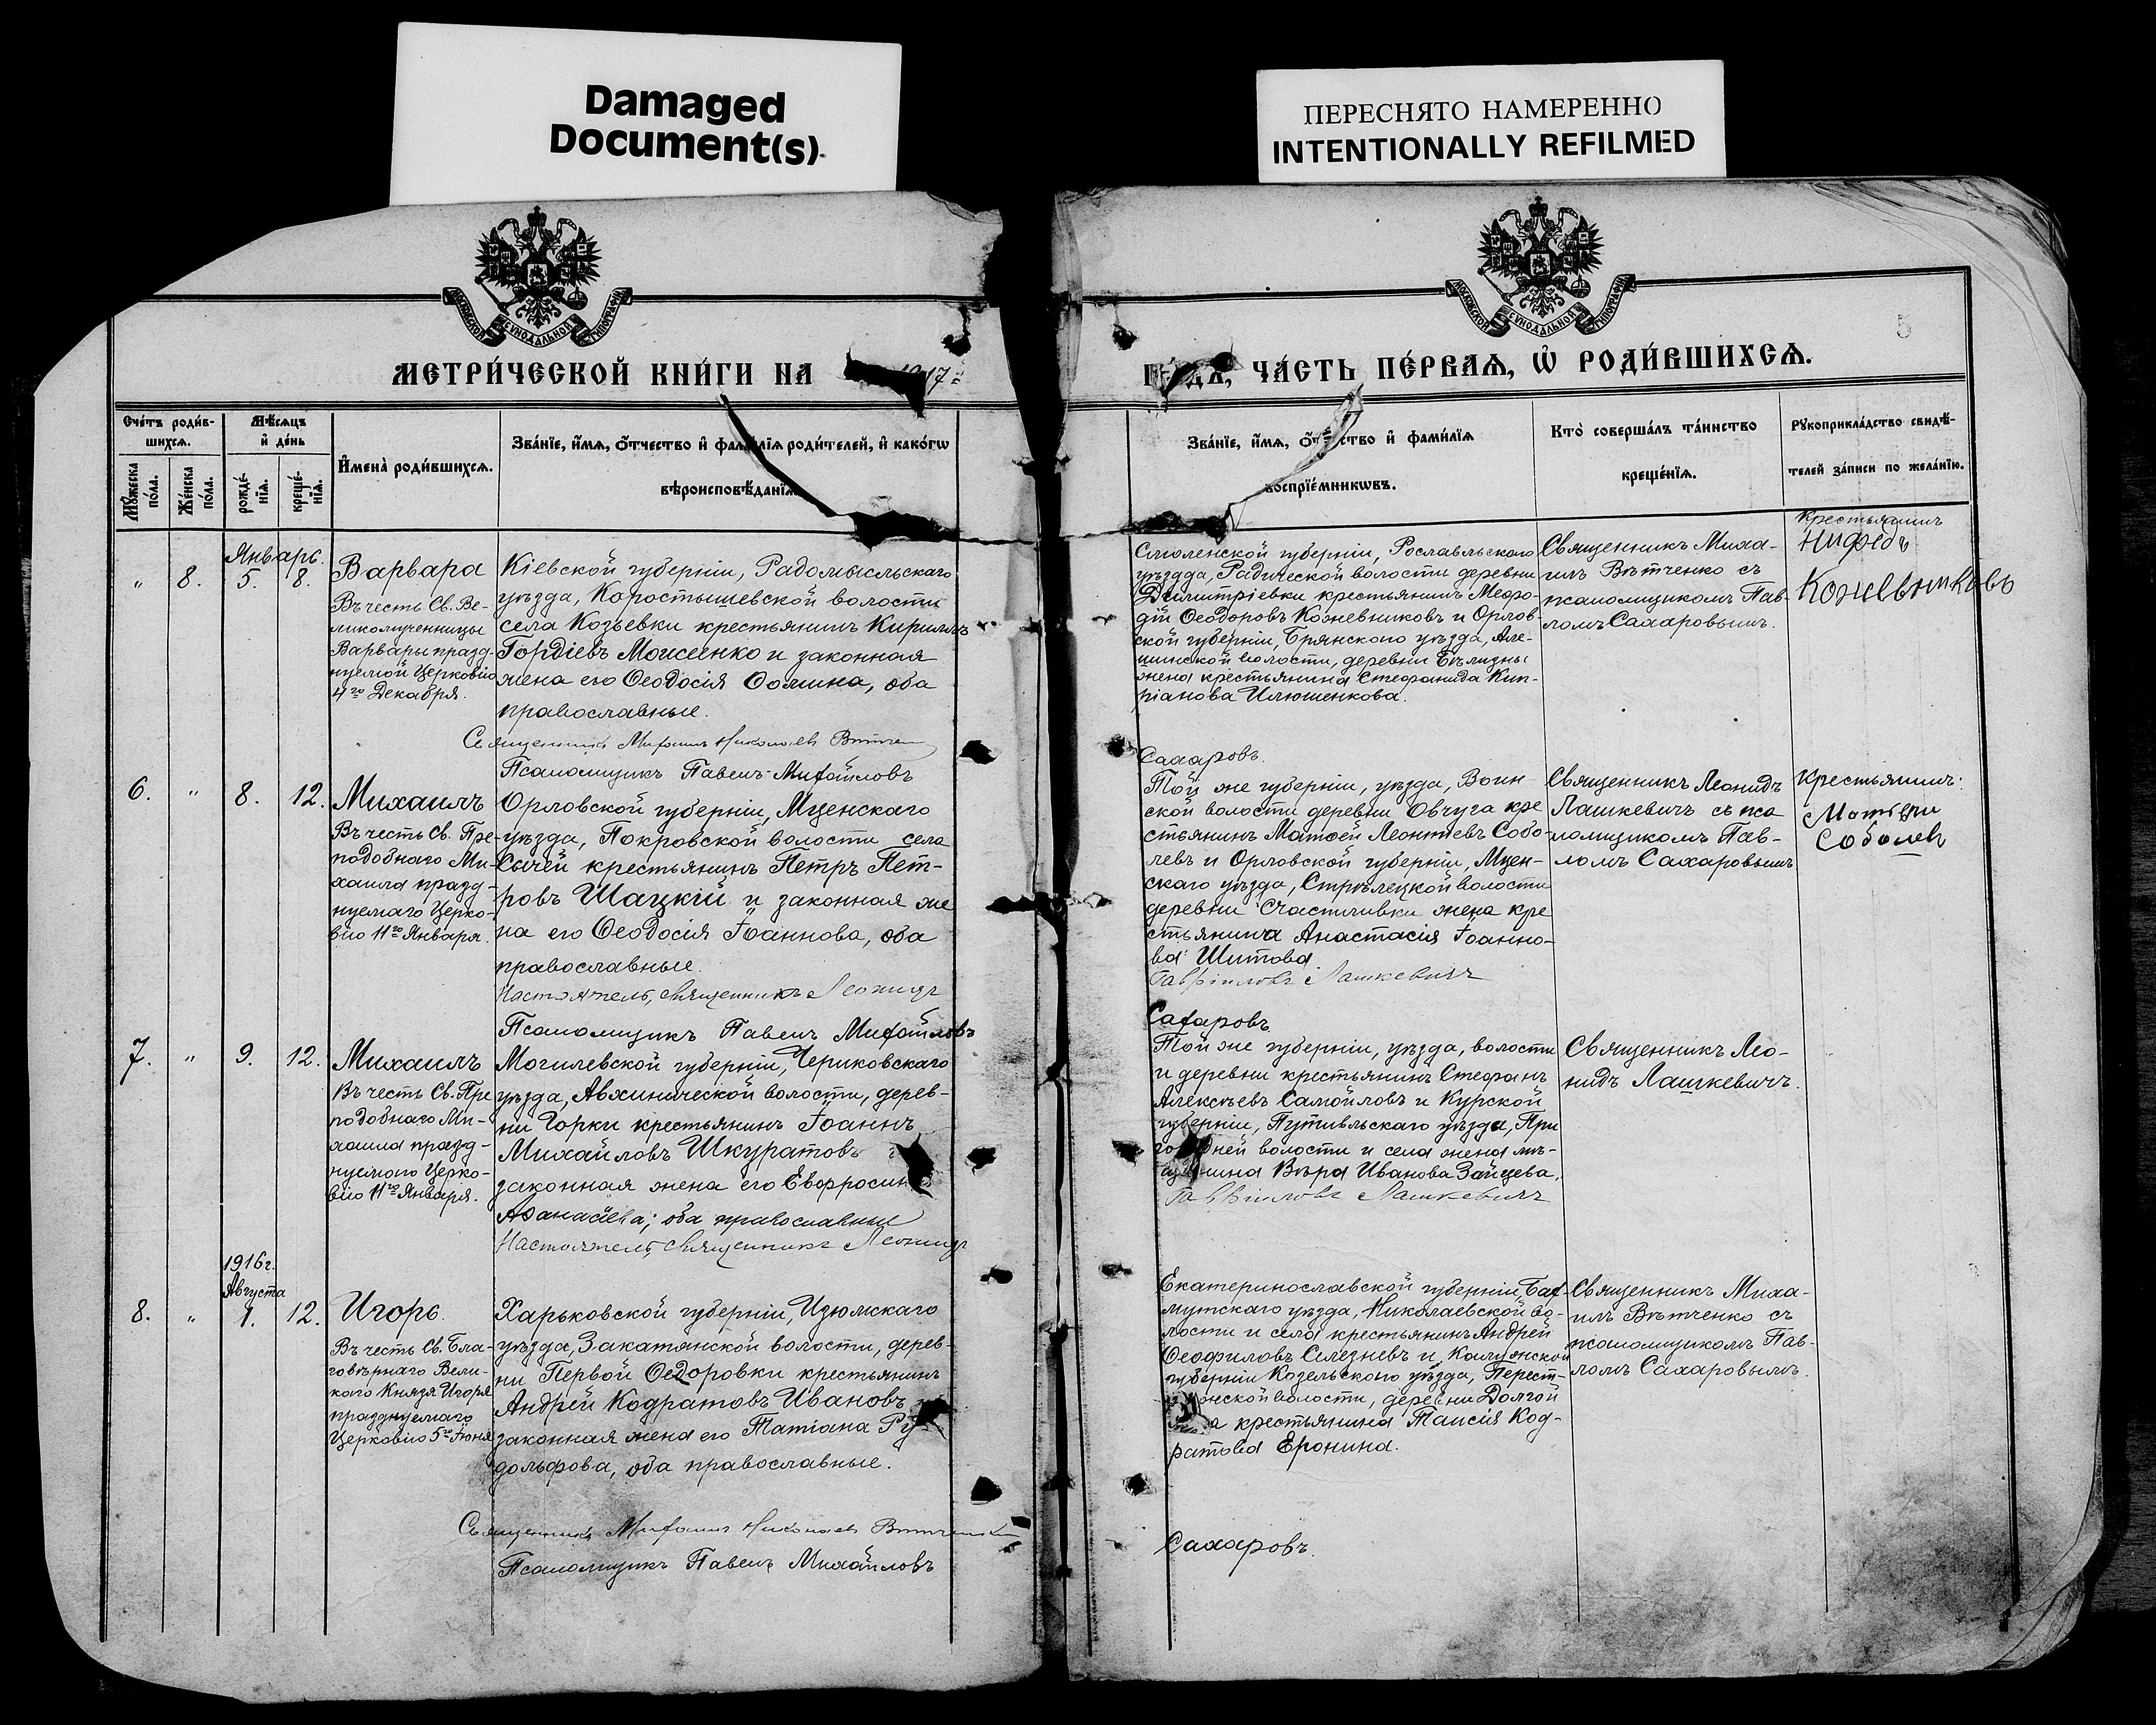 Damaged
Document(s)
ПЕРЕСНЯТО НАМЕРЕННО
INTENTIONALLY REFILMED
МОСКОВСКОЙ СѴНОДАЛЬНОЙ ТИПОГРАФІИ
МОСКОВСКОЙ СѴНОДАЛЬНОЙ ТИПОГРАФІИ
5
МЕТРИ́ЧЕСКОЙ КНИ́ГИ НА 1917 г.
ГО́ДА, ЧА́СТЬ ПЕ́РВАѦ, Ѡ҆ РОДИ́ВШИХСѦ.
Сче́тъ роди́в-
шихсѧ.
Мꙋ́жеска
пола.
Же́нска
по́ла.
Мѣ́сѧцъ
и҆ де́нь
рожде́-
нїѧ.
креще́-
нїѧ.
И҆мена̀ роди́вшихсѧ.
Зва́нїе, и҆́мѧ, ѻ҆́тчество и҆ фами́лїѧ роди́телей, и҆ како́гѡ
вѣроисповѣ́данїѧ.
Зва́нїе, и҆́мѧ, ѻ҆́тчество и҆ фами́лїѧ
воспрїе́мникѡвъ.
Кто̀ соверша́лъ та́инство
креще́нїѧ.
Рꙋкоприкла́дство свидѣ́-
телей за́писи по жела́нїю.
Январь.
" 8. 5. 8.
Варвара
Въ честь Св. Ве-
ликомученницы
Варвары празд-
нуемой Церковію
4го Декабря.
Кіевской губерніи, Радомысльскаго
уѣзда, Коростышевской волости
села Козьевки крестьянинъ Кириллъ
Гордіевъ Моисеенко и законная
жена его Ѳеодосія Ѳомина, оба
православные.
Священникъ Михаилъ Николаевъ Вѣтченко
Псаломщикъ Павелъ Михайловъ
Смоленской губерніи, Рославльскаго
уѣзда, Радической волости деревни
Димитріевки крестьянинъ Меѳо-
дій Ѳеодоровъ Кожевниковъ и Орлов-
ской губерніи, Брянскаго уѣзда, Але-
шинской волости, деревни Бѣлизны
жена крестьянина Стефанида Кип-
ріанова Илюшенкова.
Сахаровъ.
Священникъ Миха-
илъ Вѣтченко съ
псаломщикомъ Пав-
ломъ Сахаровымъ.
Крестьянинъ
Кожевниковъ
6. " 8. 12.
Михаилъ
Въ честь Св. Пре-
подобнаго Ми-
хаила празд-
нуемаго Церко-
вію 11го Января.
Орловской губерніи, Мценскаго
уѣзда, Покровской волости села
Сычей крестьянинъ Петръ Пет-
ровъ Шацкій и законная же
на его Ѳеодосія Іоаннова, оба
православные.
Настоятель, священникъ Леонидъ
Псаломщикъ Павелъ Михайловъ
Той же губерніи, уѣзда, Воин-
ской волости деревни Овчуга кре
стьянинъ Матѳей Леонтіевъ Собо-
левъ и Орловской губерніи, Мцен-
скаго уѣзда, Стрѣлецкой волости
деревни Счастливки жена кре
стьянина Анастасія Іоанно-
ва Шитова.
Гавріиловъ Лашкевичъ
Сахаровъ.
Священникъ Леонидъ
Лашкевичъ съ пса
ломщикомъ Пав-
ломъ Сахаровымъ
Крестьянинъ:
Матвѣй
Соболев
7. " 9. 12.
Михаилъ
Въ честь Св. Пре
подобнаго Ми-
хаила празд-
нуемаго Церко-
вію 11го Января.
Могилевской губерніи, Чериковскаго
уѣзда, Авхинической волости, дерев-
ни Горки крестьянинъ Іоаннъ
Михайловъ Шкуратовъ
законная жена его Евфросин
Аѳанасіева; оба православные
Настоятель, священникъ Леонидъ
Той же губерніи, уѣзда, волости
и деревни крестьянинъ Стефанъ
Алексѣевъ Самойловъ и Курской
губерніи, Путивльскаго уѣзда, При
го ней волости и села жена мѣ-
щанина Вѣра Иванова Зайцева.
Гавріиловъ Лашкевичъ
Священникъ Лео-
нидъ Лашкевичъ.
1916 г.
Августа
8. " 1. 12.
Игорь.
Въ честь Св. Бла-
говѣрнаго Вели-
каго Князя Игоря
празднуемаго
Церковію 5го Іюня
Харьковской губерніи, Изюмскаго
уѣзда, Закатянской волости, дерев-
ни Первой Ѳедоровки крестьянинъ
Андрей Кодратовъ Ивановъ и
законная жена его Татіана Ру-
дольфова, оба православные.
Священникъ Михаилъ Николаевъ Вѣтченко
Псаломщикъ Павелъ Михайловъ
Екатеринославской губерніи, Бах-
мутскаго уѣзда, Николаевской во-
лости и села крестьянинъ Андрей
Ѳеофиловъ Селезневъ и Калужской
губерніи Козельскаго уѣзда, Перест-
онской волости, деревни Долгой
жена крестьянина Таисія Код-
ратова Еронина.
Сахаровъ.
Священникъ Миха-
илъ Вѣтченко съ
псаломщикомъ Пав-
ломъ Сахаровымъ.